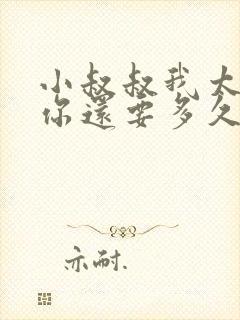 小叔叔我太
你還要多久
亦耐.